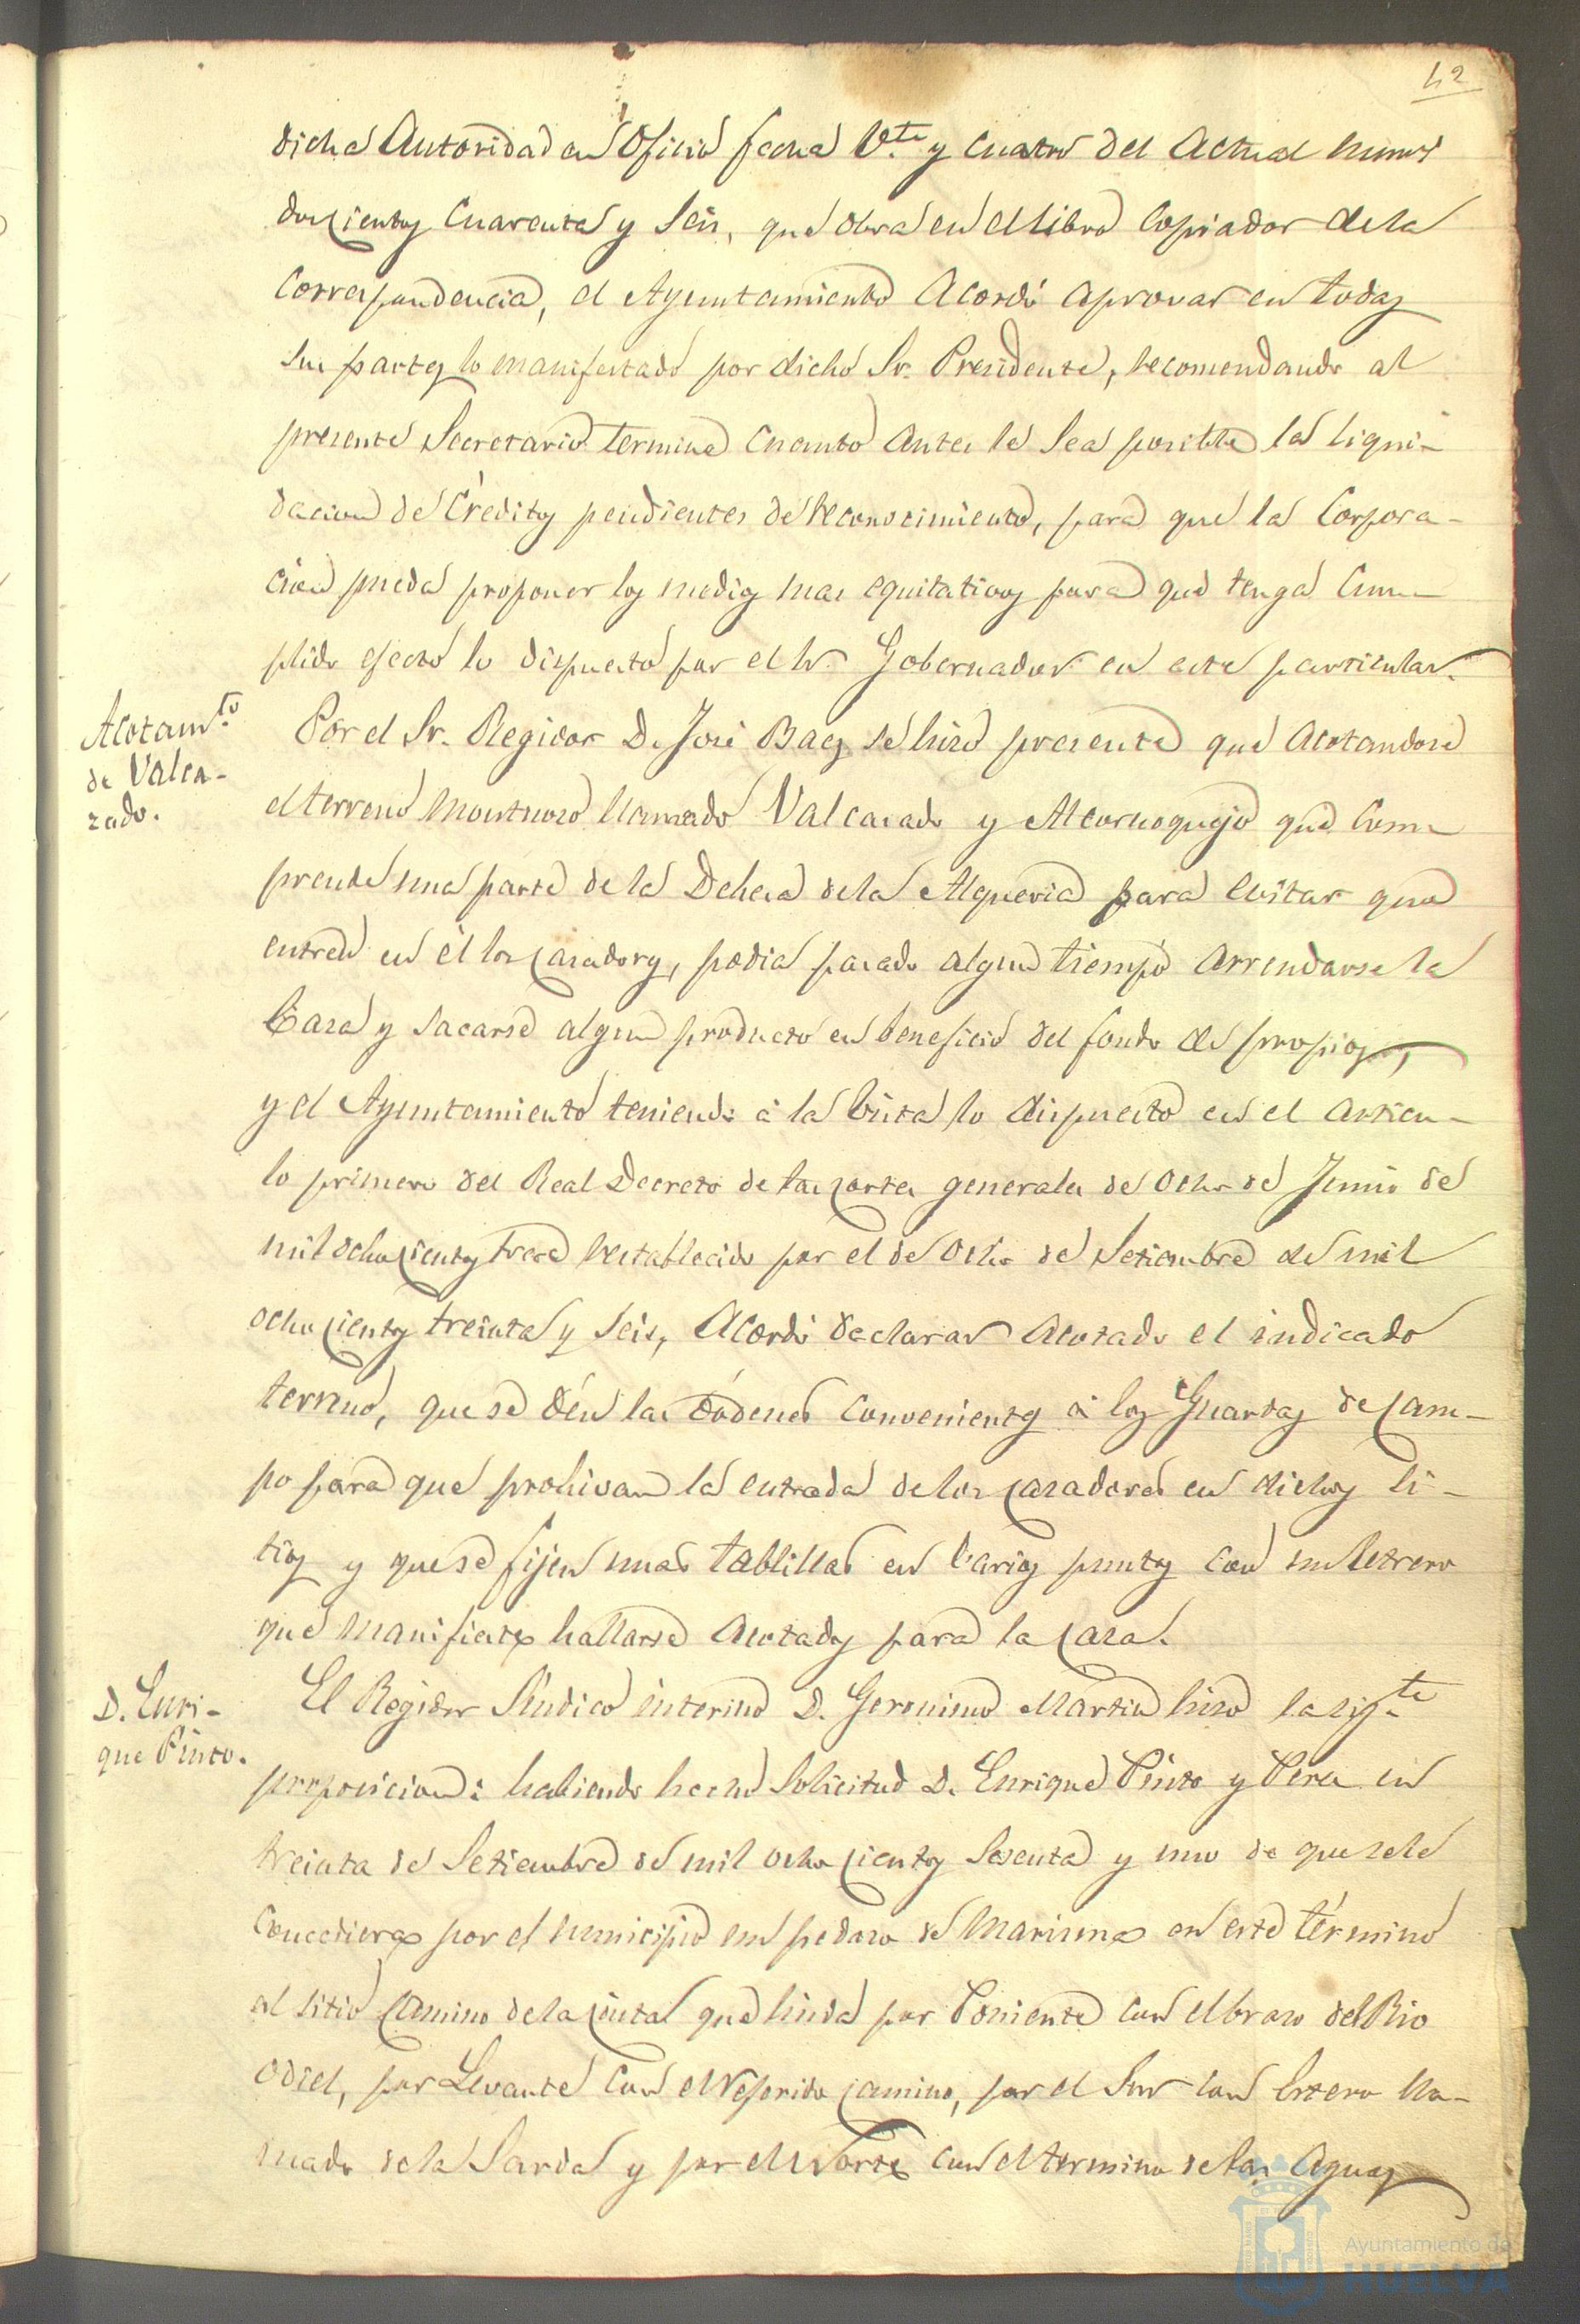 42
dicha Autoridad en Oficio fecha Vte. y Cuatro del Actual numo
doscientos Cuarenta y Seis, que obra en el libro Copiador de la
Correspondencia, el Ayuntamiento Acordó aprovar en todas
sus partes lo manifestado por dicho Sr. Presidente, recomendando al
presente Secretario termine Cuanto Antes le Sea posible la liqui-
dacion de Créditos pendientes de reconocimiento, para que la Corpora-
cion pueda proponer los medios mas equitativos para que tenga Cum-
plido efecto lo dispuesto por el Sr. Gobernador en este particular.
Acotamto.
de Valca-
zado.
Por el Sr. Regidor D. José Baez se hizo presente que Acotandose
el terreno Montuoso llamado Valcazado y Alcornoquejo que Com-
prende una parte de la Dehesa de la Alqueria para evitar que
entren en él los Cazadores, podia pasado algun tiempo Arrendarse la
Caza y Sacarse algun producto en beneficio del fondo de propios,
y el Ayuntamiento teniendo á la vista lo dispuesto en el articu-
lo primero del Real Decreto de las Cortes generales de Ocho de Junio de
mil ochocientos trece restablecido por el de Ocho de Setiembre de mil
ochocientos treinta y Seis, Acordó declarar Acotado el indicado
terreno, que se dén las órdenes Convenientes á los Guardas de Cam-
po para que prohivan la entrada de los Cazadores en dichos Si-
tios y que se fijen unas tablillas en varios puntos con un letrero
que Manifieste hallarse Acotados para la Caza.
D. Enri-
que Pinto.
El Regidor Síndico interino D. Geronimo Martin hizo la sigte
proposicion: habiendo hecho Solicitud D. Enrique Pinto y Perez en
treinta de Setiembre de mil ochocientos Sesenta y uno de que se le
Concediera por el Municipio un pedazo de Marisma en este término
al sitio Camino de la Cinta que linda por Poniente con el brazo del Rio
Odiel, por Levante Con el referido Camino, por el Sur con Estero lla-
mado de la Sarda y por el Norte Con el termino de las Aguas
Ayuntamiento de
HUELVA